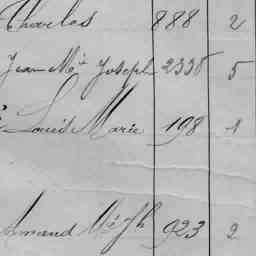 Charles 888 2
Jean Mie Joseph 2338 5
Louis Marie 198 1
Armand 923 2